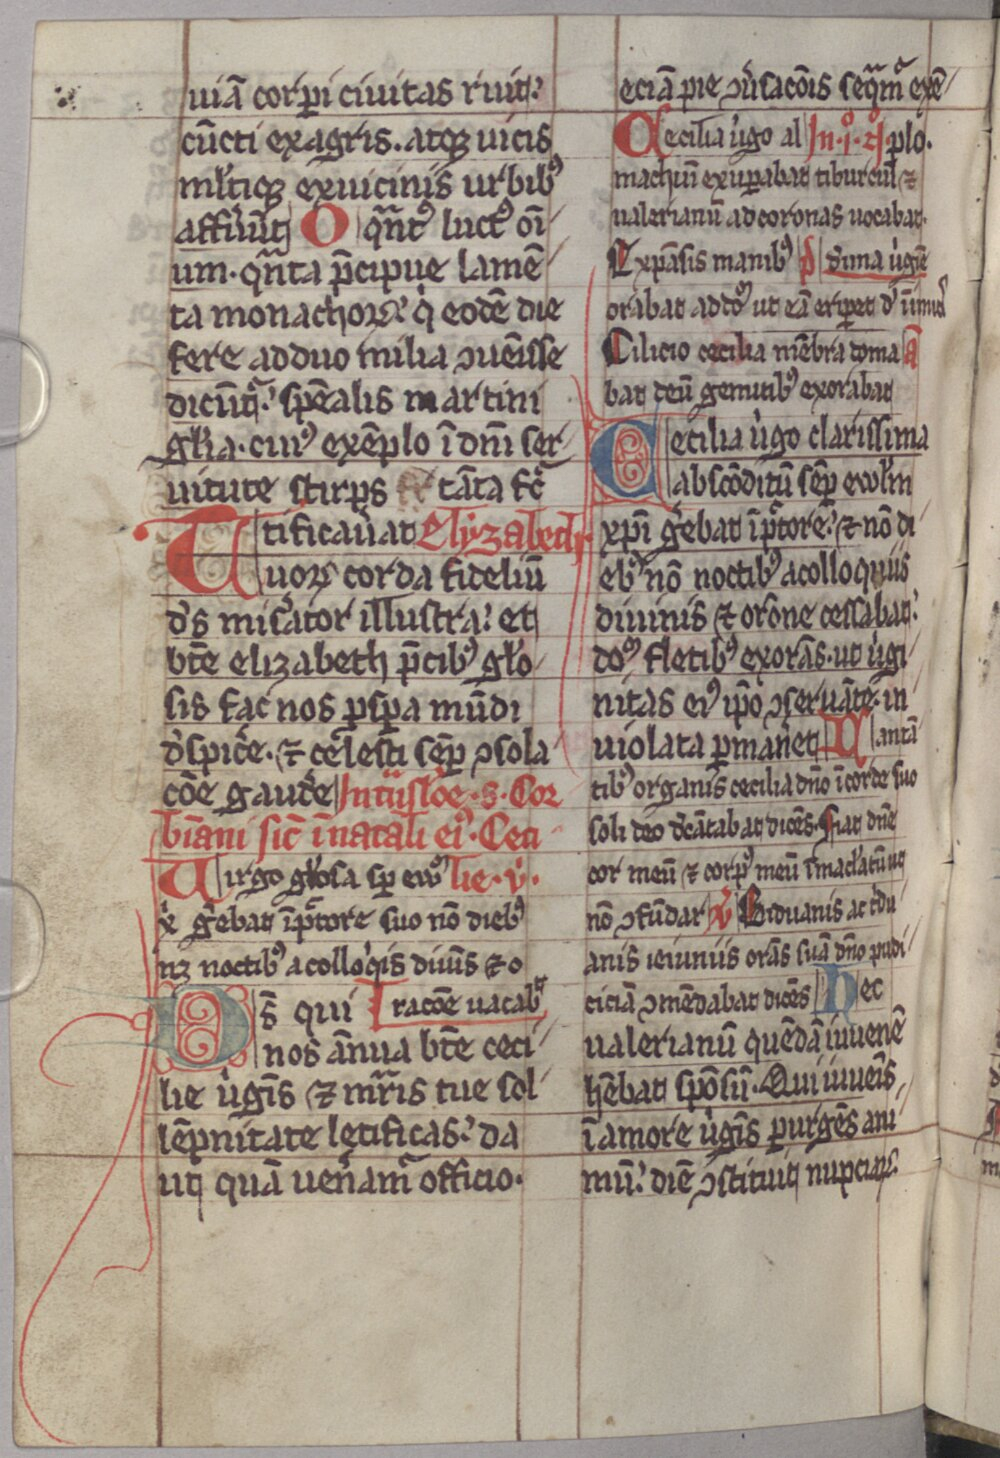 uiā corꝑi ciuitas ruit.
cūcti ex agris. atqꝫ uicis
ml̓tiqꝫ ex uicinis urbibꝰ
affuūt O qn̄tꝰ luctꝰ oī
um. qn̄ta p̄cipue lamē
ta monachoꝝ. q̇ eodē die
fere ad duo milia ꝯuēisse
dicūt᷑. spēalis martini
gl̓ia. cuiꝰ exēplo ī dn̄i ser
uitute stirps tāta fc̄
tificauāt Elyzabeth
Tuoꝝ corda fideliū
d̓s mis̓ator illustra. et
btē elizabeth p̄cibꝰ gl̓o
sis fac nos ꝓsꝑa mūdi
d̓spic̓e. ⁊ celesti sēꝑ ꝯsola
cōe gaud̓e In t̓nsl̓oe. s. Cor
biani sic̄ ī natali eiꝰ. Ceci
Uirgo gl̓osa sꝑ ew̄ lie. v̓.
x̓ ge̓bat ī pc̄tore suo nō diebꝰ
nꝫ noctibꝰ a colloq̇is diuīs ⁊ o
D s̄ qui racōe uacabat
nos ān̄ua btē ceci
lie u̓gīs ⁊ mr̄ris tue sol
lēpnitate letificas. da
ut quā uen̓am᷑ officio.
eciā pie ꝯu̓sacōis seqm᷑ exē
Cecilia u̓go al In .i. ꝶ plo.
machiū exuꝑabat tiburciū ⁊
ualerianū ad coronas uocabat.
Expāsis manibꝰ p̄ dn̄a u̓gīe
orabat ad dōꝫ ut eā eriꝑet d̓ inimic̓
Cilicio cecilia mēbra doma a̅
bat deū gemitibꝰ exorabat
Cecilia u̓go clarissima
abscōditū sēꝑ ewl̓m
xp̄i ge̓bat ī pc̄tore. ⁊ nō di
ebꝰ nō noctibꝰ a colloquiis
diuinis ⁊ orōne cessabat.
dōꝫ fletibꝰ exorās. ut u̓gi
nitas eiꝰ ip̄o ꝯseruāte. in
uiolata ꝑman̓et Cantā
tibꝰ organis cecilia dn̄o ī corde suo
soli deo d̓cātabat dicēs. Fiat dn̄e
cor meū ⁊ corpꝰ meū īmacl̓atū ut
nō ꝯfūdar v̓ Biduanis ac t̓du
anis ieiuniis orās suā dn̄o pudi
ciciā ꝯmēdabat dicēs Hec
ualerianū quēdā iuuenē
hēbat spōsū. Qui iuueīs
ī amore u̓gīs ꝑurgēs ani
mū. diē ꝯstituit nupciaꝝ.